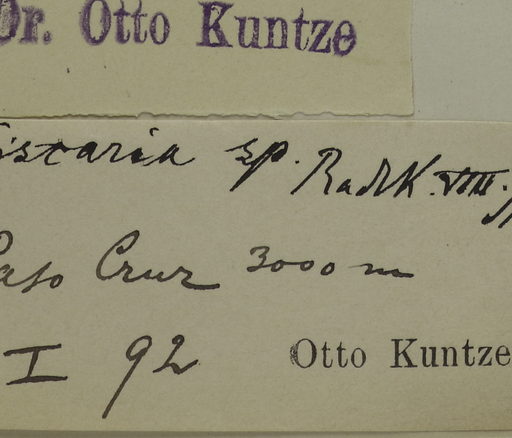 Dr. Otto Kuntze
iscaria sp. Radlk. VIII.
Paso Cruz 3000 m
I 92
Otto Kuntze